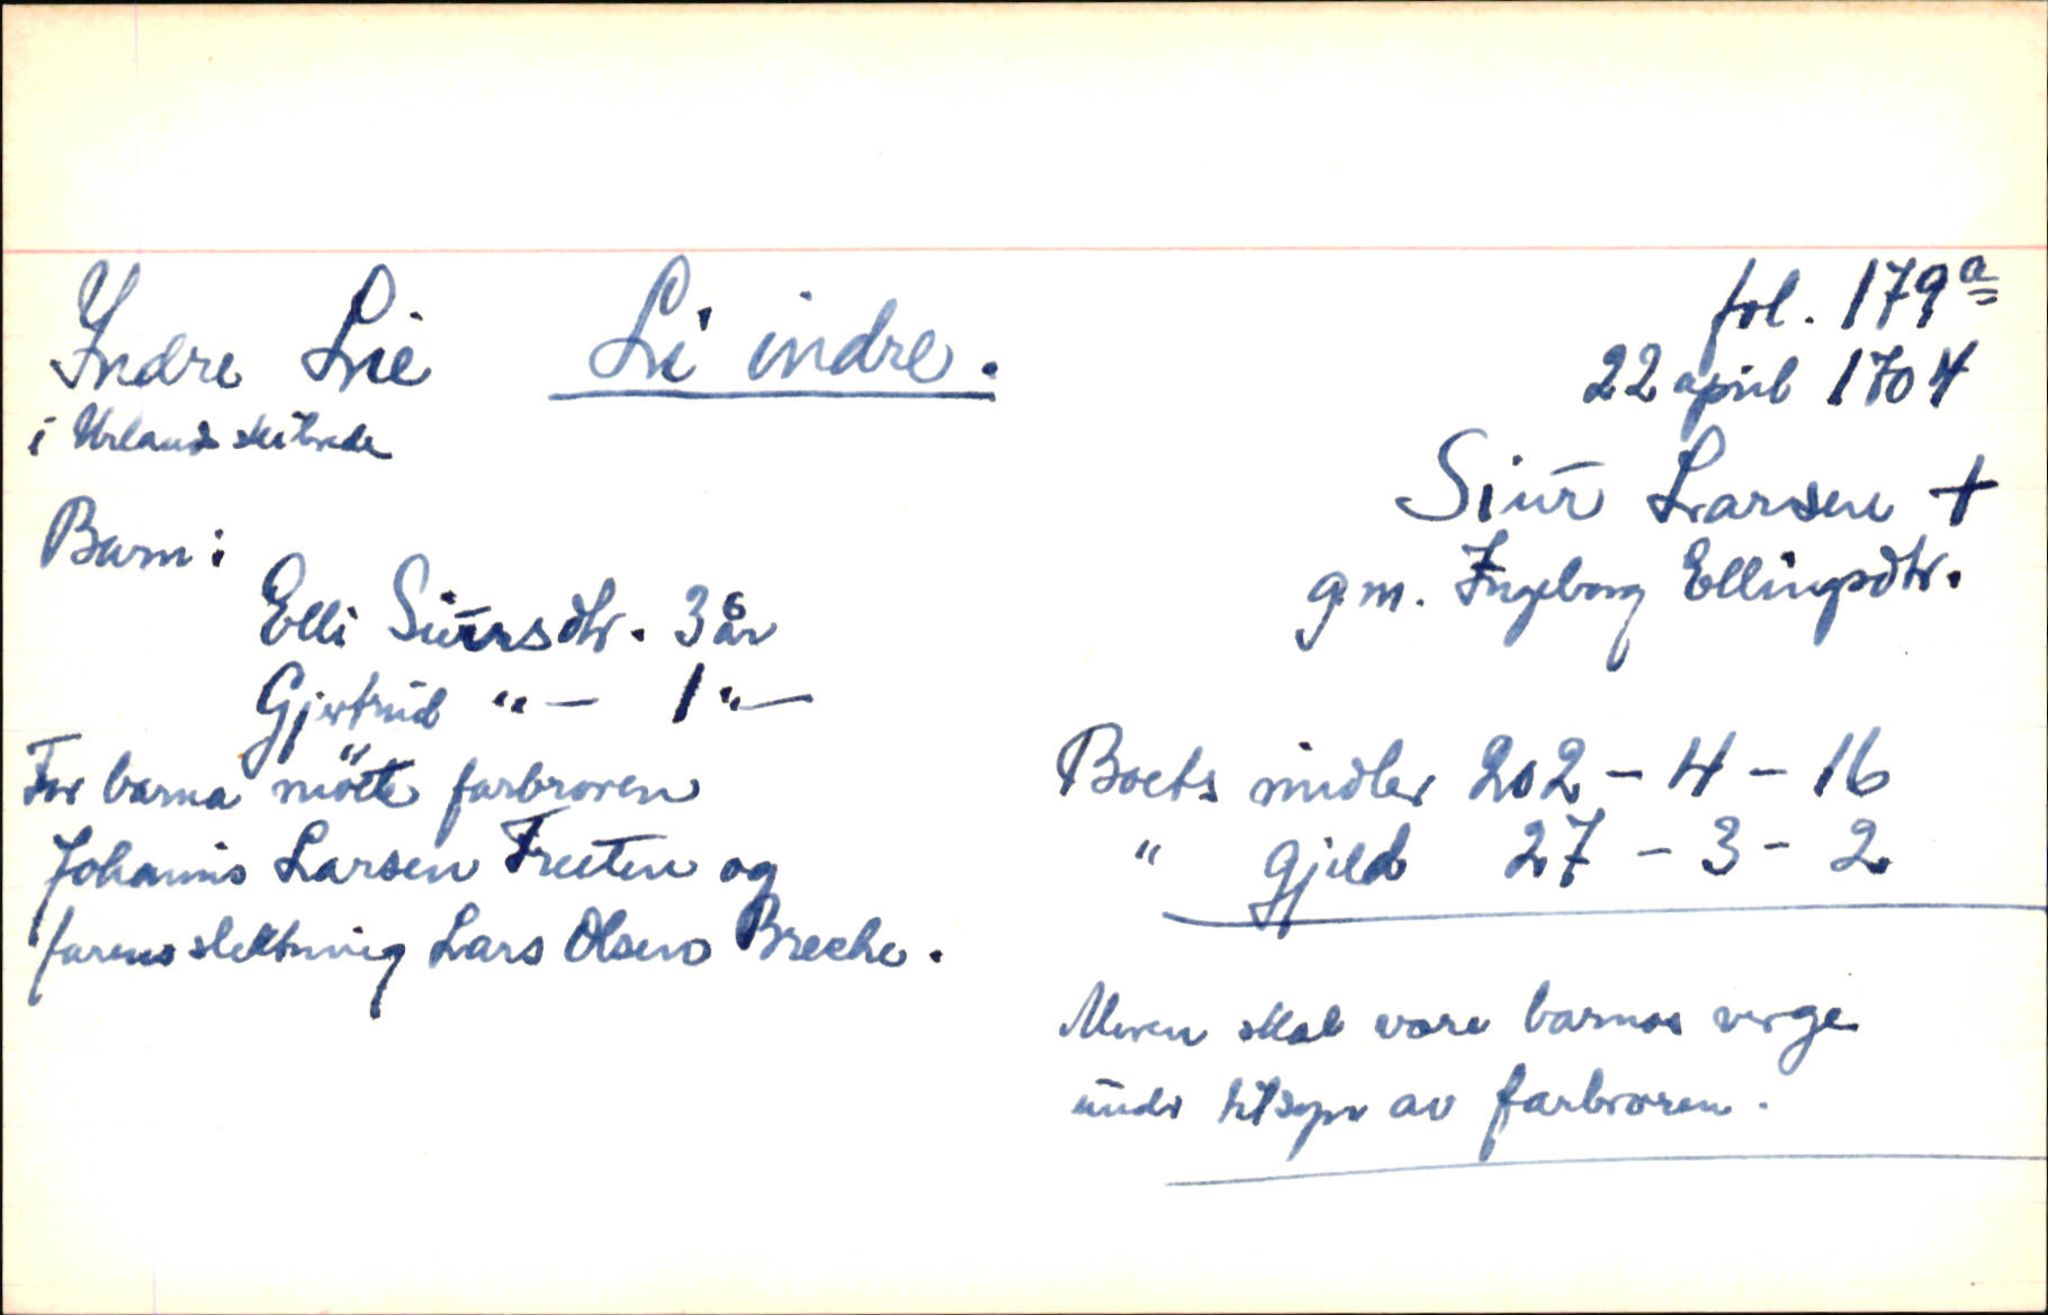 Indre Lie Li indre.
i Urlands skibrede
fol. 179 a
22 april 1704
Siur Larsen +
gm. Ingeborg Ellingsdtr.
Barn:
Elli Siursdtr. 3 år
Gjertrud "— 1 "—
For barna möte farbroren
Johannis Larsen Freten og
farens slektning Lars Olsen Breche.
Boets midler 202 - 4 - 16
" gjeld 27 - 3 - 2
Moren skal være barnas verge
under tilsyn av farbroren.